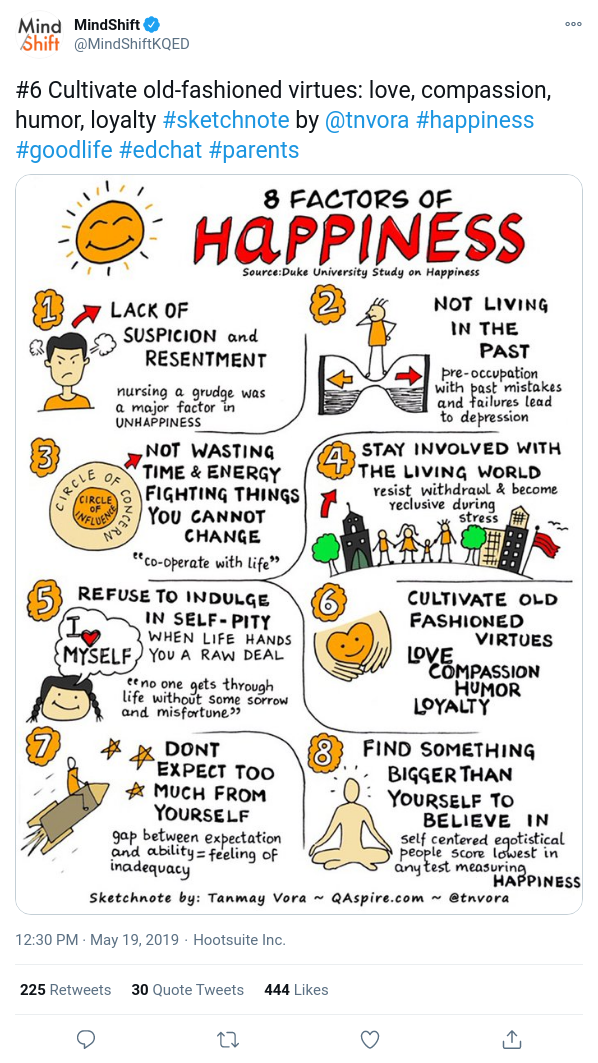 Mind
Shift
MindShift
@MindShiftKQED
#6 Cultivate old-fashioned virtues: love, compassion,
humor, loyalty #sketchnote by @tnvora #happiness
#goodlife #edchat #parents
8 FACTORS OF
HAPPINESS
Source:Duke University Study on Happiness
1
LACK OF
SUSPICION and
RESENTMENT
nursing a grudge was
a major factor in
UNHAPPINESS
2
NOT LIVING
IN THE
PAST
pre-occupation
with past mistakes
and failures lead
to depression
3
NOT WASTING
TIME & ENERGY
FIGHTING THINGS
YOU CANNOT
CHANGE
"co-operate with life"
CIRCLE OF CONCERN
CIRCLE
OF
INFLUENCE
4
STAY INVOLVED WITH
THE LIVING WORLD
resist withdrawl & become
reclusive during
stress
5
REFUSE TO INDULGE
IN SELF-PITY
WHEN LIFE HANDS
YOU A RAW DEAL
I
MYSELF
"no one gets through
life without some sorrow
and misfortune"
6
CULTIVATE OLD
FASHIONED
VIRTUES
LOVE
COMPASSION
HUMOR
LOYALTY
7
DONT
EXPECT TOO
MUCH FROM
YOURSELF
gap between expectation
and ability=feeling of
inadequacy
8
FIND SOMETHING
BIGGER THAN
YOURSELF TO
BELIEVE IN
self centered egotistical
people score lowest in
any test measuring
HAPPINESS
Sketchnote by: Tanmay Vora ~ QAspire.com ~ @tnvora
12:30 PM · May 19, 2019 · Hootsuite Inc.
225 Retweets 30 Quote Tweets 444 Likes